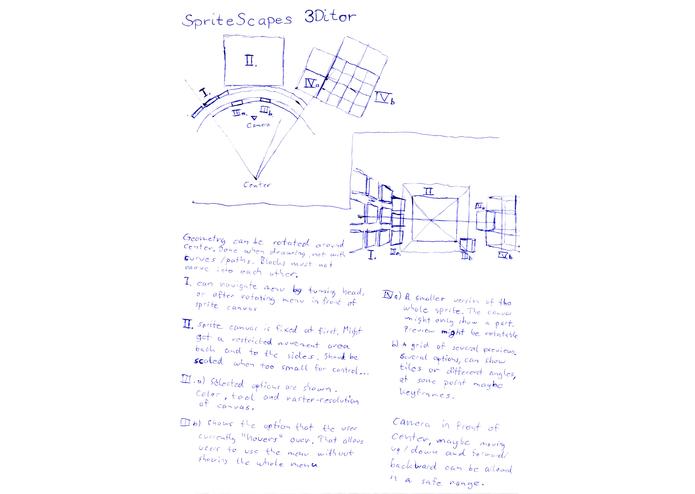 SpriteScapes 3Ditor
II.
I.
IVa
IVb
IIIa.
IIIb.
Camera
Center
II
I.
IIIa.
IIIb
IVa
IVb
Geometry can be rotated around
center. Done when drawing, not with
curves/paths. Blocks must not
move into each other.
I. can navigate menu by turning head,
or after rotating menu in front of
sprite canvas
II. sprite canvas is fixed at first. Might
get a restricted movement area
back and to the sides. Should be
scaled when too small for control...
III. a) Selected options are shown.
Color, tool and raster-resolution
of canvas.
III b) Shows the option that the user
currently "hovers" over. That allows
users to use the menu without
showing the whole menu.
IV a) A smaller version of the
whole sprite. The canvas
might only show a part.
Preview might be rotatable
b) A grid of several previews.
Several options, can show
tiles or different angles,
at some point maybe
keyframes.
Camera in front of
center, maybe moving
up/down and forward/
backward can be allowed
in a safe range.